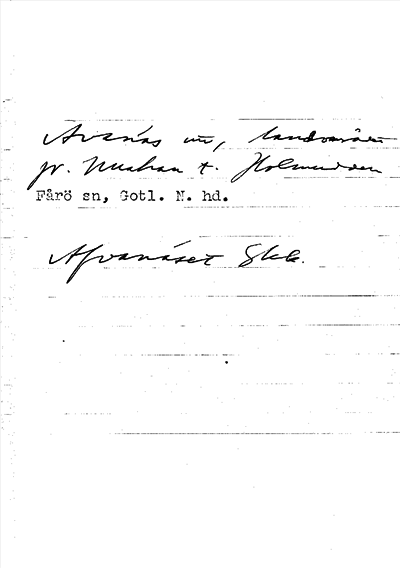 Avanäs ur, landområde
fr. Nuahan t. Holmudden
Fårö sn, Gotl. N. hd.
Afvanäset Gkk.